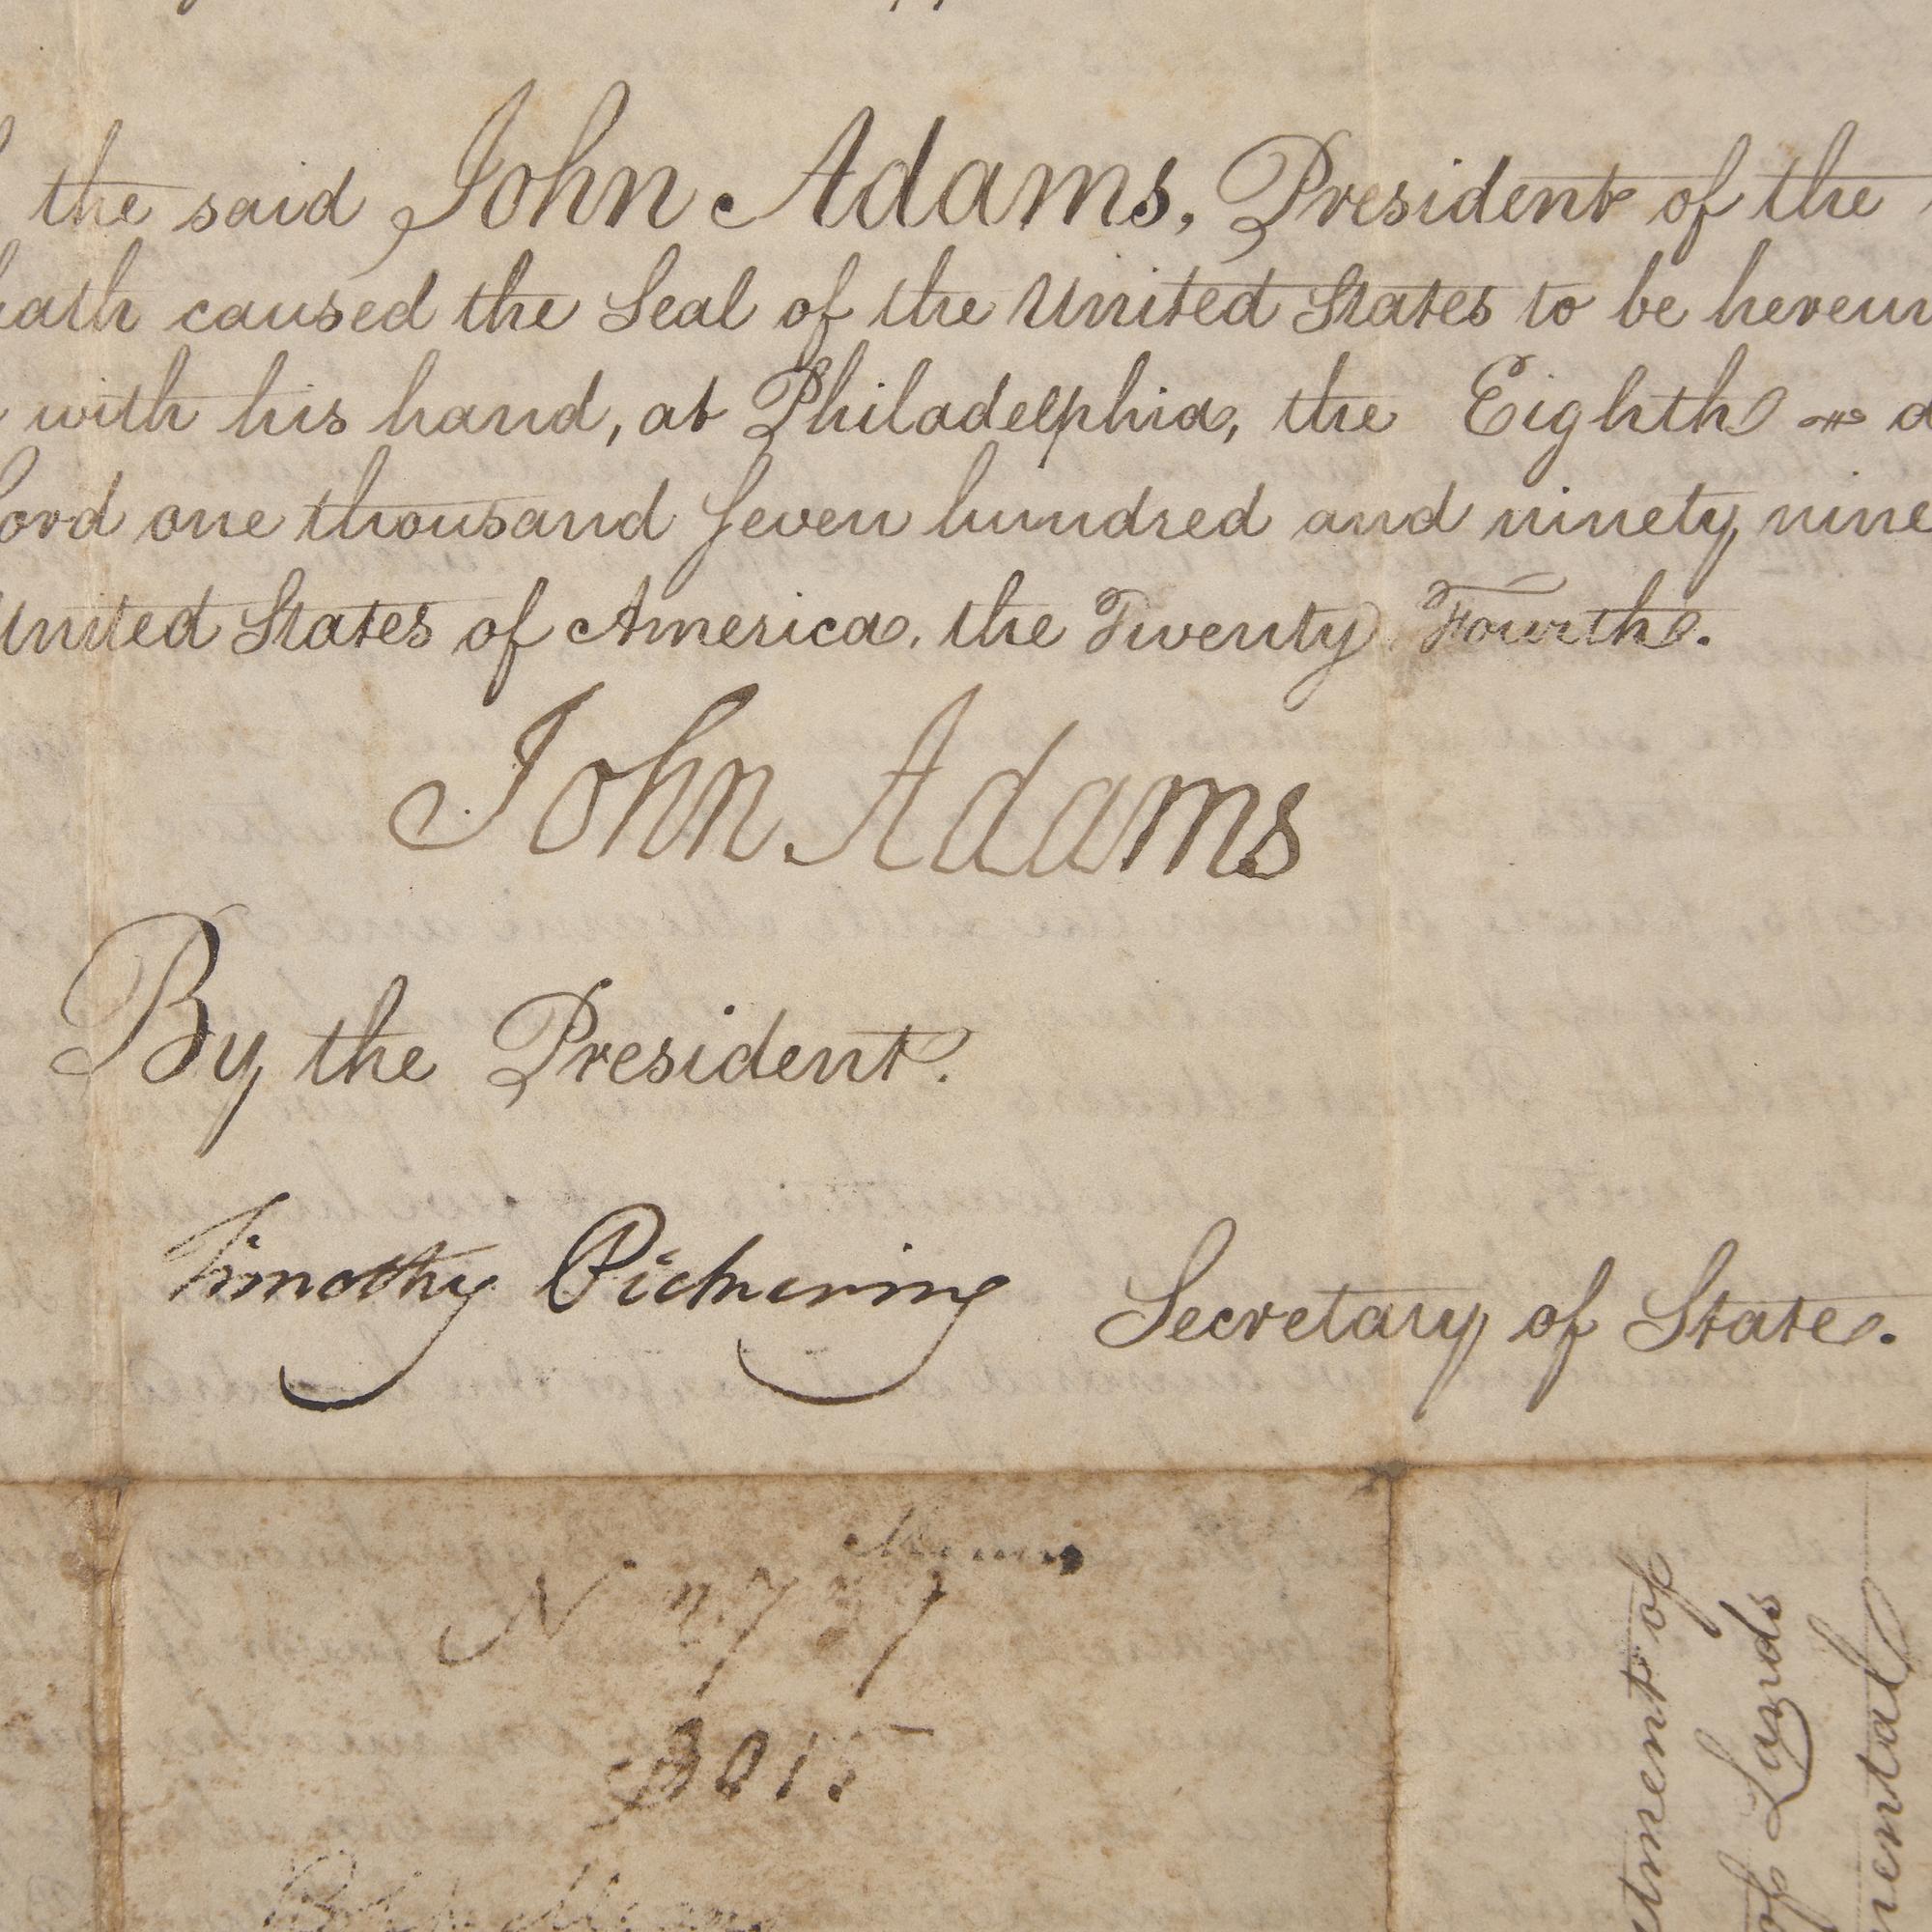 the said John Adams, President of the
hath caused the Seal of the United States to be hereun
with his hand, at Philadelphia, the Eighth
Lord one thousand seven hundred and ninety nine
United States of America, the Twenty Fourth.
John Adams
By the President.
Timothy Pickering Secretary of State.
N 2737
3015
of
Lands